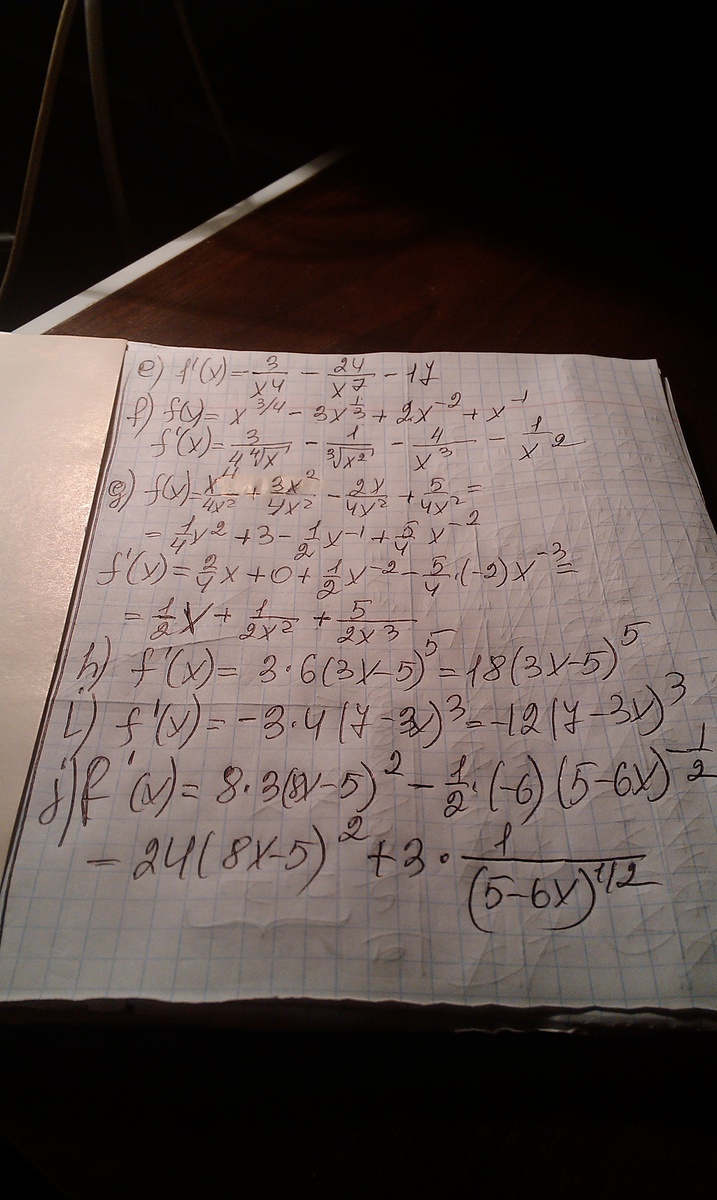 e) f'(x) = 3/x^4 - 24/x^7 - 17
f) f(x) = x^(3/4) - 3x^(1/3) + 2x^(-2) + x^(-1)
f'(x) = 3/(4 ⁴√x) - 1/(³√x²) - 4/x^3 - 1/x^2
g) f(x) = x^4/4x^2 + 3x^2/4x^2 - 2x/4x^2 + 5/4x^2 =
= 1/4 x^2 + 3 - 1/2 x^(-1) + 5/4 x^(-2)
f'(x) = 2/4 x + 0 + 1/2 x^(-2) - 5/4 · (-2) x^(-3) =
= 1/2 x + 1/2x^2 + 5/2x^3
h) f'(x) = 3·6(3x-5)^5 = 18(3x-5)^5
i) f'(x) = -3·4(7-3x)^3 = -12(7-3x)^3
j) f'(x) = 8·3(8x-5)^2 - 1/2 · (-6)(5-6x)^(-1/2)
= 24(8x-5)^2 + 3 · 1/(5-6x)^(1/2)